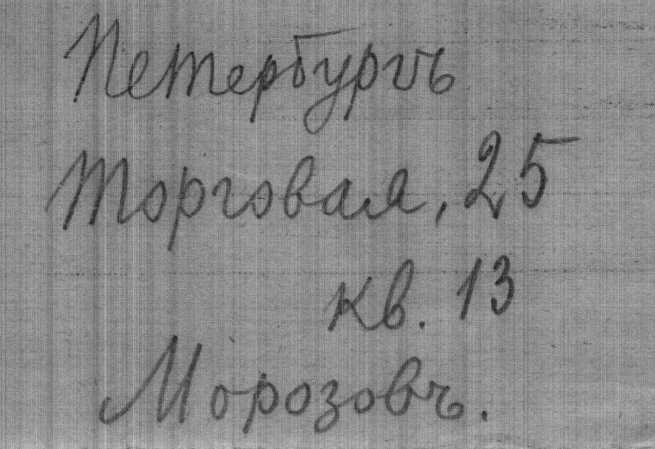 Петербургъ
Торговая, 25
кв. 13
Морозовъ.